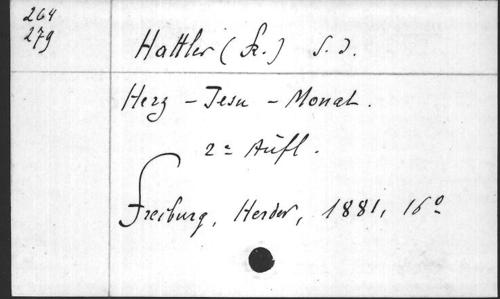 264
279
Hattler (Fr.) S.J.
Herz - Jesu - Monat.
2e Aufl.
Freiburg, Herder, 1881, 16º